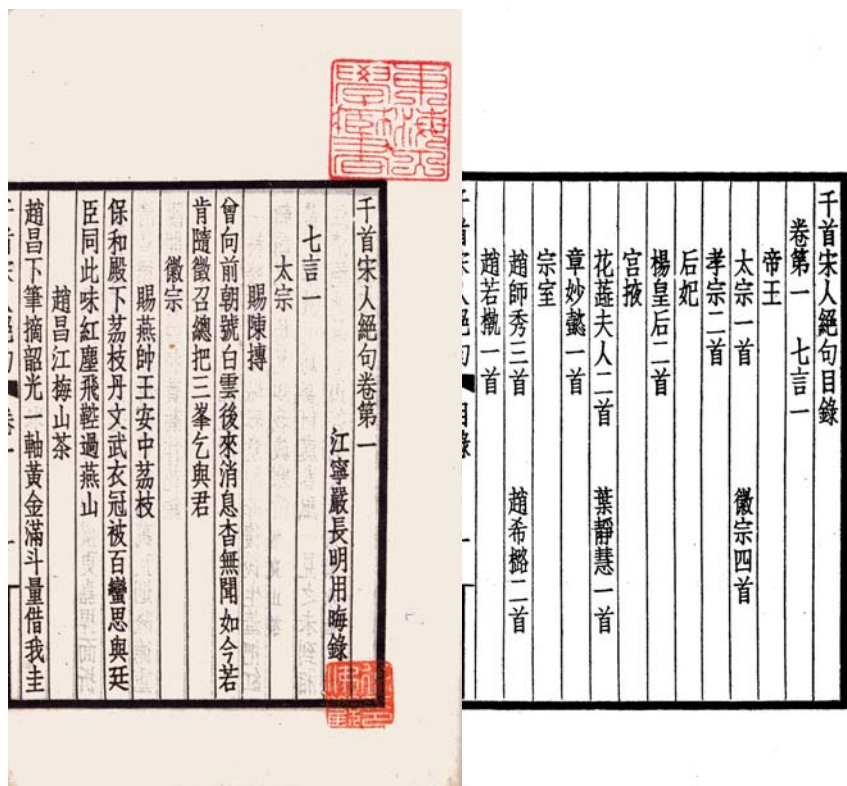 千首宋人絕句目錄
卷第一　七言一
帝王
太宗一首　徽宗四首
孝宗二首
后妃
楊皇后二首
宮掖
花蕊夫人二首　葉靜慧一首
章妙懿一首
宗室
趙師秀三首　趙希㯝二首
趙若槸一首
千首宋人絕句　目錄
千首宋人絕句卷第一
江寧嚴長明用晦錄
七言一
太宗
賜陳摶
曾向前朝號白雲後來消息杳無聞如今若
肯隨徵召總把三峯乞與君
徽宗
賜燕帥王安中荔枝
保和殿下荔枝丹文武衣冠被百蠻思與廷
臣同此味紅塵飛鞚過燕山
趙昌江梅山茶
趙昌下筆摘韶光一軸黃金滿斗量借我圭
千首宋人絕句　卷一　一